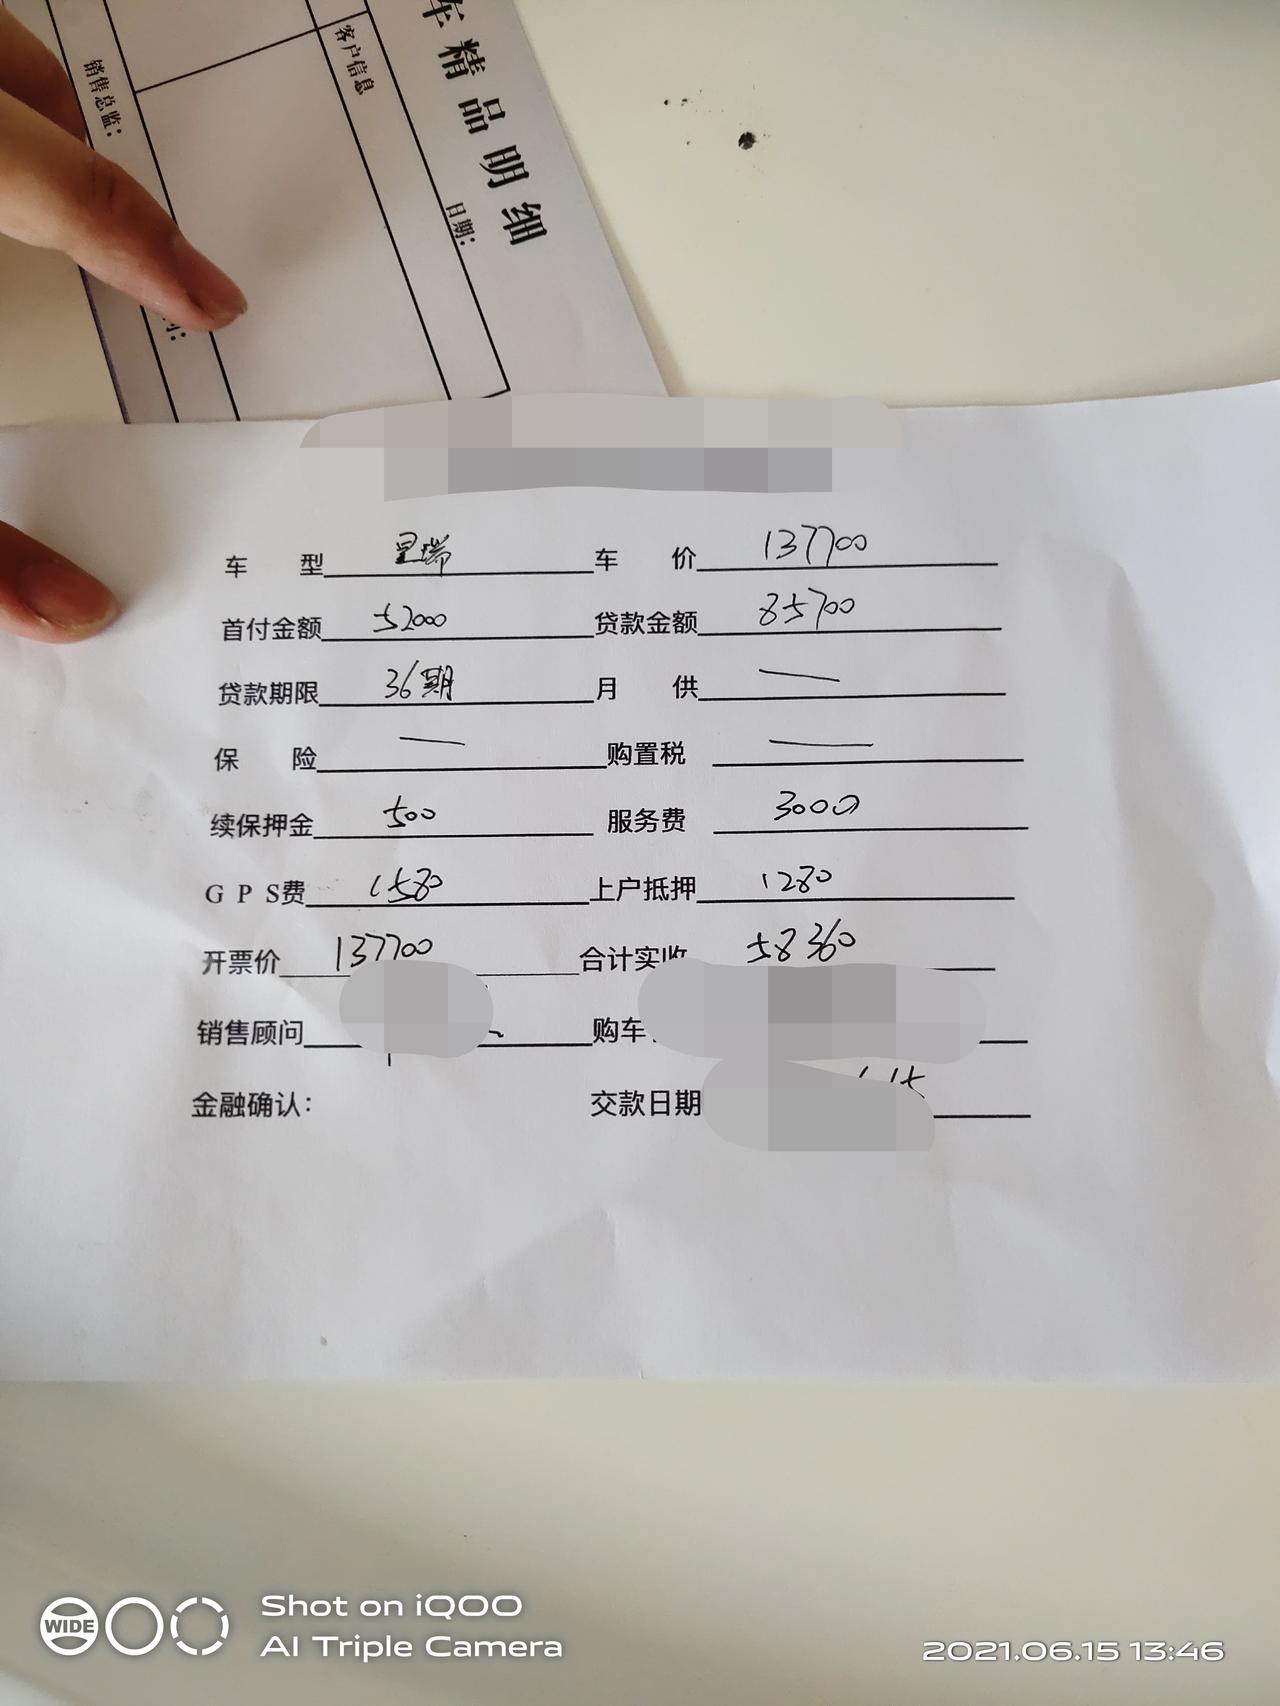 车精品明细
日期：
客户信息
销售总监：
车 型 星瑞 车 价 137700
首付金额 52000 贷款金额 85700
贷款期限 36期 月 供 —
保 险 — 购置税 —
续保押金 500 服务费 3000
G P S费 1580 上户抵押 1280
开票价 137700 合计实收 58360
销售顾问 购车
金融确认： 交款日期
WIDE
Shot on iQOO
AI Triple Camera
2021.06.15 13:46